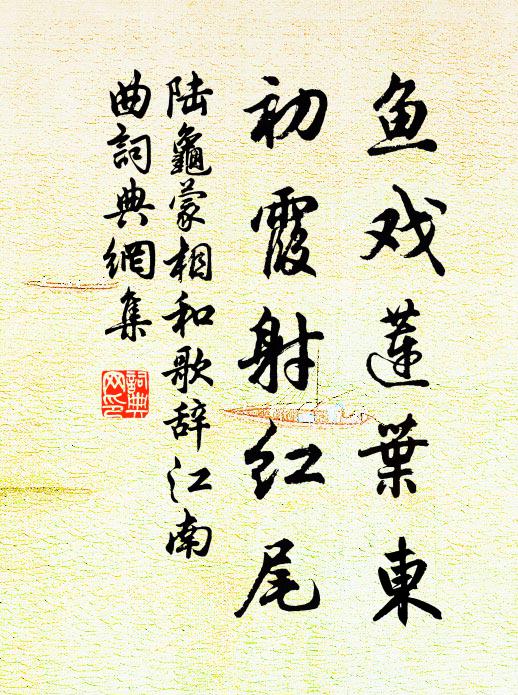 鱼戏莲葉東
初霞射红尾
陆龜蒙相和歌辞江南
曲詞典網集
詞典
网印